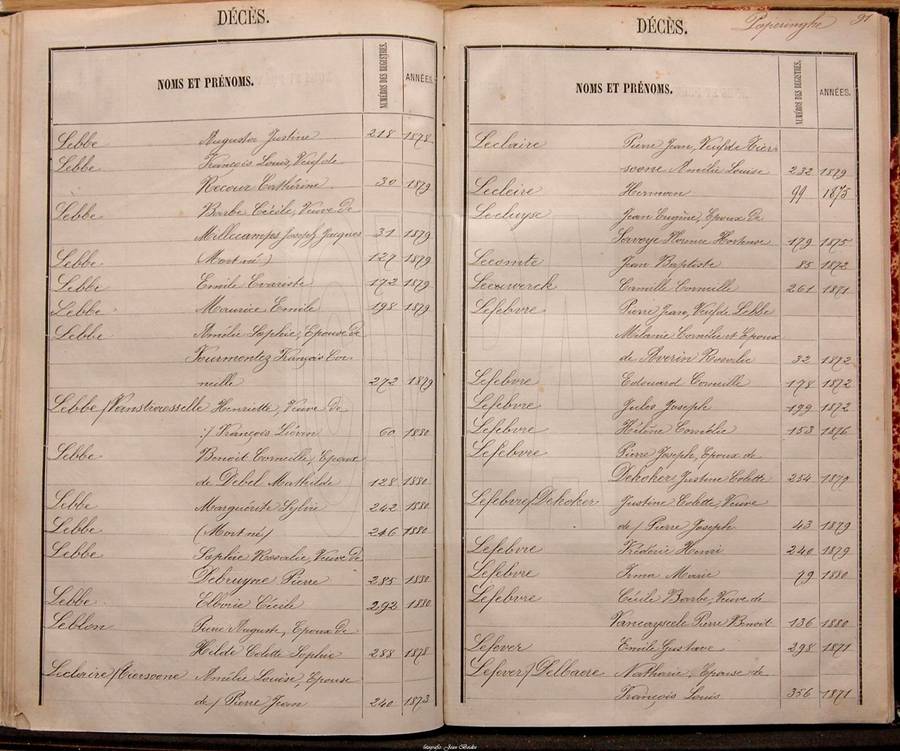 DÉCÈS.
NOMS ET PRÉNOMS. NUMÉROS DES REGISTRES. ANNÉES.
Lebbe Augusta Justine 218 1878
Lebbe François Louis, Veuf de
Recour Cathérine. 30 1879
Lebbe Barbe Cécile, Veuve de
Millecamps Joseph Jacques 31 1879
Lebbe (Mort né) 127 1879
Lebbe Emile Evariste 172 1879
Lebbe Maurice Emile 198 1879
Lebbe Amélie Sophie, Epouse de
François Cor-
neille 272 1879
Lebbe / Vanstraesselle Henriette, Veuve de
:/ François Liévin 60 1880
Lebbe Benoit Corneille, Epoux
de Debel Mathilde 128 1880
Lebbe Marguérite Sylvie 242 1880
Lebbe (Mort né) 246 1880
Lebbe Sophie Rosalie, Veuve de
Debruyne Pierre 285 1880
Lebbe Elboise Cécile 292 1880
Leblon Pierre Auguste, Epoux de
Hilde Colette Sophie 258 1878
Leclaire / Tiersoone Amélie Louise, Epouse
de / Pierre Jean 240 1873
DÉCÈS. Poperinghe 91
NOMS ET PRÉNOMS. NUMÉROS DES REGISTRES. ANNÉES.
Leclaire Pierre Jean, Veuf de Tier-
soone Amélie Louise 232 1879
Lecleire Herman 99 1875
Lecluyse Jean Eugène, Epoux de
Florence Hortense 179 1875
Lecomte Jean Baptiste 85 1872
Leeuwerck Camille Corneille 261 1871
Lefebvre Pierre Jean, Veuf de Lebbe
Mélanie Cornélie et Epoux
de Averin Rosalie 32 1872
Lefebvre Edouard Corneille 178 1872
Lefebvre Jules Joseph 199 1872
Lefebvre Hélène Cornélie 153 1876
Lefebvre Pierre Joseph, Epoux de
Dekoker Justine Colette 254 1879
Lefebvre / Dekoker Justine Colette, Veuve
de / Pierre Joseph 43 1879
Lefebvre Frédéric Henri 240 1879
Lefebvre Irma Marie 79 1880
Lefebvre Cécile Barbe, Veuve de
Vancayseele Pierre Benoit 136 1880
Lefever Emile Gustave 298 1871
Lefever / Delbaere Nathalie, Epouse de
François Louis 356 1871